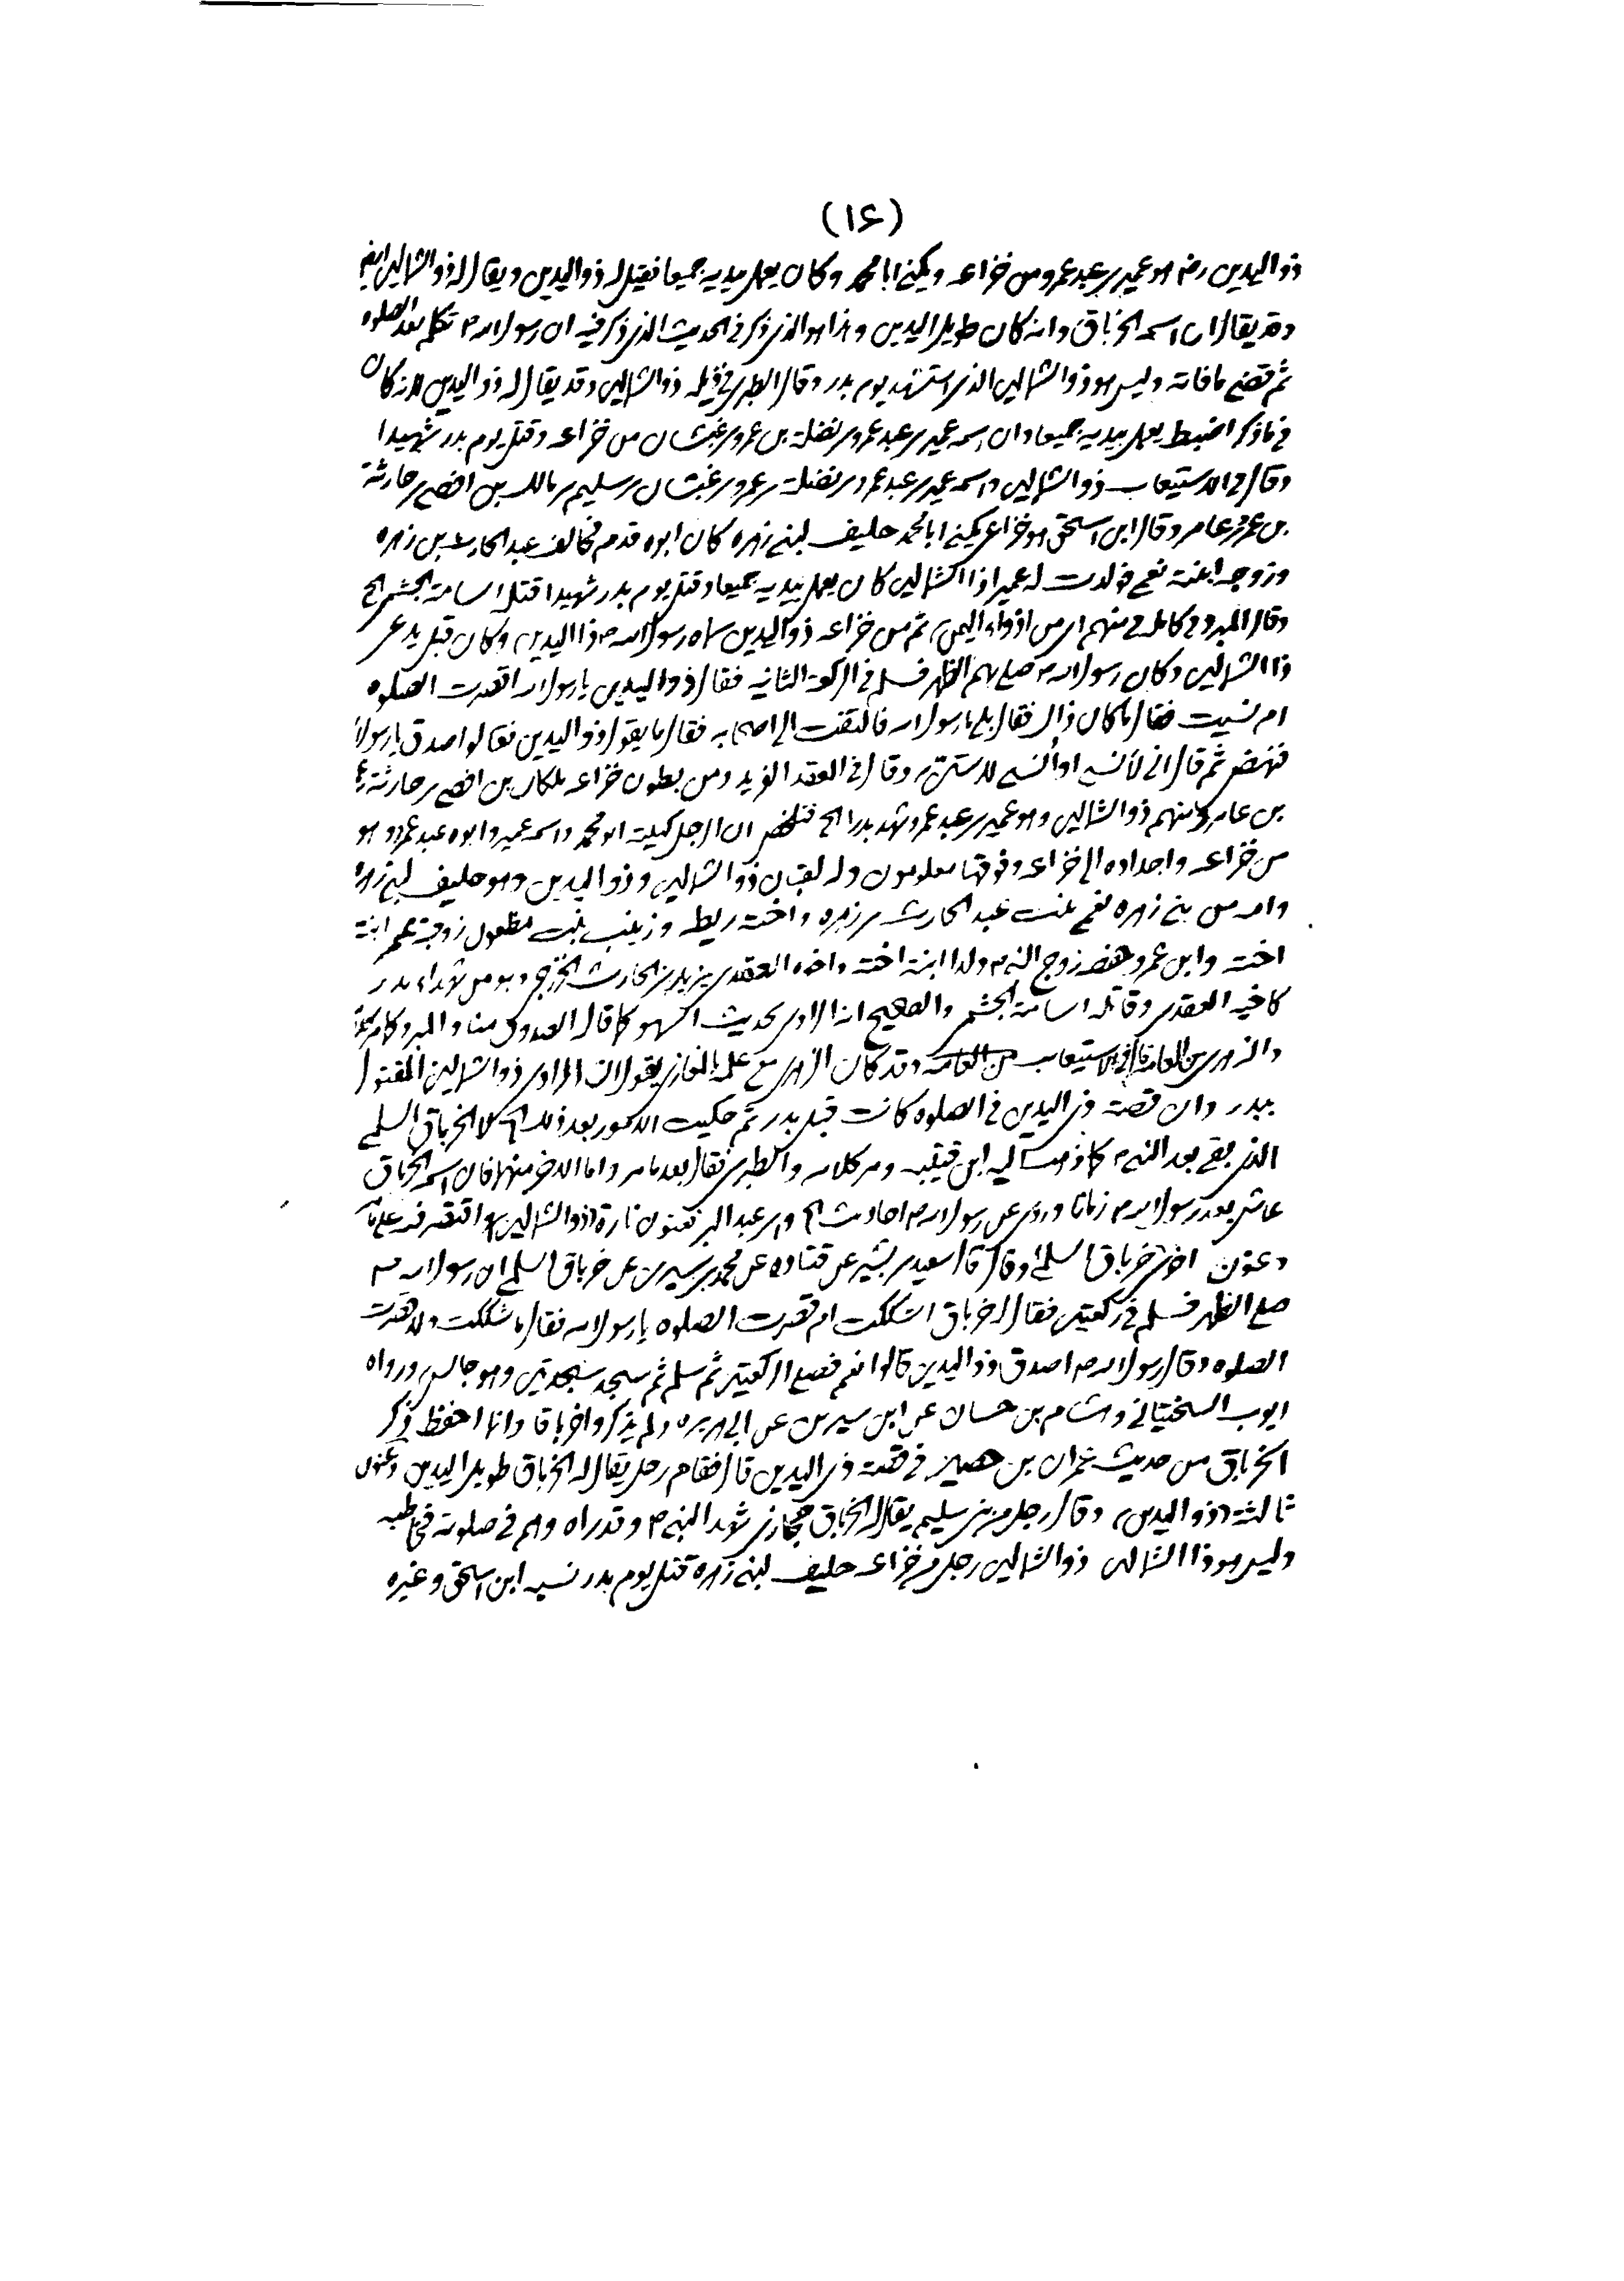 (١٦)
ذو اليدين رضه هو عمير بن عبد عمرو من خزاعه ويكنى ابا محمد وكان يعمل بيديه جميعا فقيل له ذو اليدين ويقال له ذو الشمالين ايضا
وقد يقال ان اسمه الخرباق وانه كان طويل اليدين وهذا هو الذى ذكر في الحديث الذى ذكر فيه ان رسول الله ص تكلم بعد الصلوه
ثم قضى ما فاته وليس هو ذو الشمالين الذى استشهد يوم بدر وقال الطبرى في ذيله ذو الشمالين وقد يقال له ذو اليدين لانه كان
في ما ذكر اضبط يعمل بيديه جميعا وان اسمه عمير بن عبد عمرو بن نضلة بن عمرو بن غبشان من خزاعه وقتل يوم بدر شهيدا
وقال في الاستيعاب ذو الشمالين واسمه عمير بن عبد عمرو بن نضلة بن عمرو بن غبشان بن سليم بن مالك بن افصى بن حارثة
بن عمرو بن عامر وقال ابن اسحق هو خزاعى يكنى ابا محمد حليف لبنى زهره كان ابوه قدم فحالف عبد الحارث بن زهره
وزوجه ابنته نعم فولدت له عميرا ذا الشمالين كان يعمل بيديه جميعا وقتل يوم بدر شهيدا قتله اسامة الجشمى الخ
وقال المبرد في كامله في منهم اى من اذواء اليمن، ثم من خزاعه ذو اليدين سماه رسول الله ص ذا اليدين وكان قبل يدعى
ذا الشمالين وكان رسول الله ص صلى بهم الظهر فسلم في الركعة الثانيه فقال ذو اليدين يا رسول الله اقصرت الصلوه
ام نسيت فقال ما كان ذاك فقال بلى يا رسول الله فالتفت الى اصحابه فقال ما يقول ذو اليدين فقالوا صدق يا رسول الله
فنهض ثم قال انى لأنسى او أنسى لاستن، وقال في العقد الفريد ومن بطون خزاعه ملكان بن افصى بن حارثة
بن عامر منهم ذو الشمالين وهو عمير بن عبد عمرو شهد بدرا الخ فتلخص ان الرجل كنيته ابو محمد واسمه عمير وابوه عبد عمرو وهو
من خزاعه واجداده الى خزاعه وفوقها معلومون وله لقبان ذو الشمالين وذو اليدين وهو حليف لبنى زهره
وامه من بنى زهره نعم بنت عبد الحارث بن زهره واخته ريطه وزينب بنت مظعون زوجة عمر ابنة
اخته وابن عمرو حفصه زوج النبى ص ولدا ابنة اخته واخوه العقدى يزيد بن الحارث الخزرجى وهو من شهداء بدر
كاخيه العقدى وقاتله اسامة الجشمى والصحيح انه الراوى لحديث السهو كما قال الصدوق منا والمبرد كامر
والزهرى من العامة قال في الاستيعاب وقد كان الزهرى مع علمه بالمغازى يقول انه المراوى ذو الشمالين المقتول
ببدر وان قصة ذى اليدين في الصلوه كانت قبل بدر ثم حكيت الامور بعد ذلك الخ لا الخرباق السلمى
الذى بقى بعد النبى ص كما ذهب اليه ابن قتيبه ومر كلامه والطبرى فقال بعد ما مر واما الاخر منهما فان اسمه الخرباق
عاش بعد رسول الله ص زمانا وروى عن رسول الله ص احاديث الخ وابن عبد البر فعنون تارة «ذو الشمالين» واقتصر فيه على ما مر
وعنون اخرى خرباق السلمى وقال قال سعيد بن بشير عن قتاده عن محمد بن سيرين عن خرباق السلمى ان رسول الله ص
صلى الظهر فسلم في ركعتين فقال له خرباق اشككت ام قصرت الصلوه يا رسول الله فقال ما شككت ولا قصرت
الصلوه وقال رسول الله ص اصدق ذو اليدين قالوا نعم فصلى الركعتين ثم سلم ثم سجد سجدتين وهو جالس، ورواه
ايوب السختيانى وهشام بن حسان عن ابن سيرين عن ابى هريره ولم يذكروا خرباقا وانما احفظ ذكر
الخرباق من حديث عمران بن حصين في قصة ذى اليدين قال فقام رجل يقال له الخرباق طويل اليدين وعنون
ثالثة «ذو اليدين» وقال رجل من بنى سليم يقال له الخرباق حجازى شهد النبى ص وقد راه وهم في صلوته فخاطبه
وليس هو ذا الشمالين ذو الشمالين رجل من خزاعه حليف لبنى زهرة قتل يوم بدر نسبه ابن اسحق وغيره